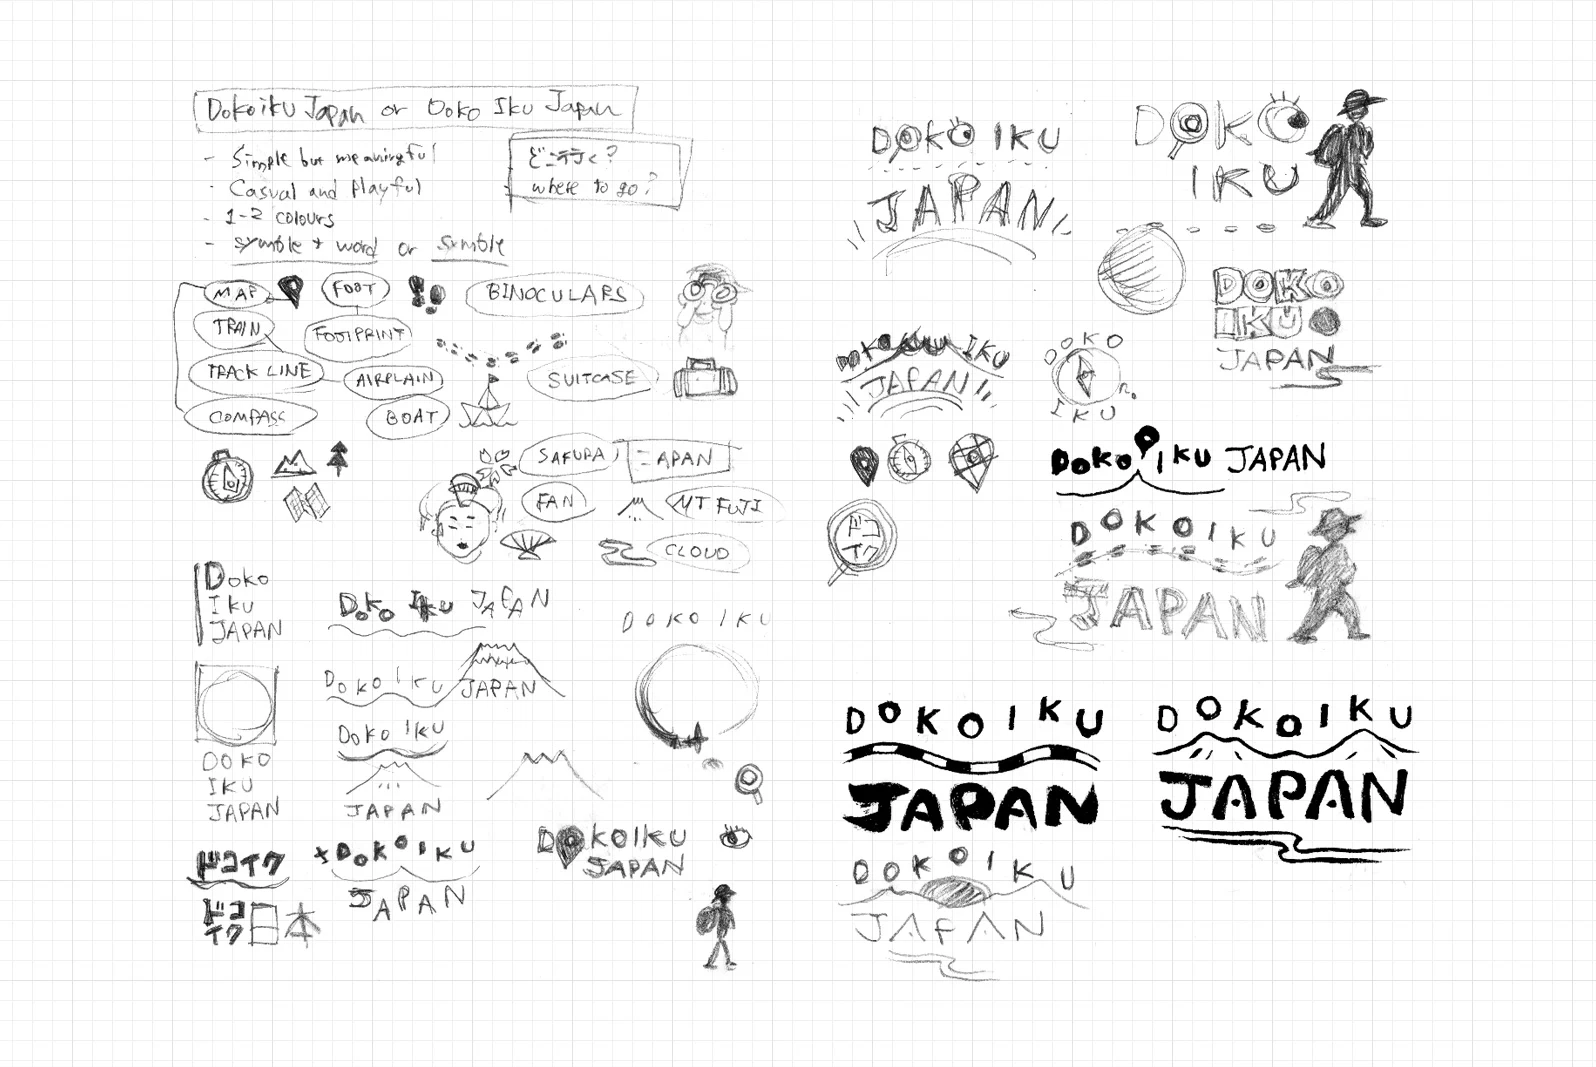 Dokoiku Japan or Doko Iku Japan
- Simple but meaningful
- Casual and Playful
- 1-2 colours
- symble + word or symble
どこ行く?
where to go?
MAP
FOOT
BINOCULARS
TRAIN
FOOTPRINT
TRACK LINE
AIRPLAIN
SUITCASE
COMPASS
BOAT
SAKURA
JAPAN
FAN
MT FUJI
CLOUD
Doko
Iku
JAPAN
Doko Iku JAPAN
DOKO IKU
Doko iku
JAPAN
DOKO
IKU
JAPAN
Doko iku
JAPAN
ドコイク
ドコ
イク
日本
DOKOIKU
JAPAN
DOKOIKU
JAPAN
DOKO IKU
JAPAN
DOKO
IKU
DOKO
IKU
JAPAN
DOKO IKU
JAPAN
DOKO
IKU
DOKO IKU JAPAN
ドコ
イク
DOKOIKU
JAPAN
DOKOIKU
JAPAN
DOKOIKU
JAPAN
DOKOIKU
JAPAN